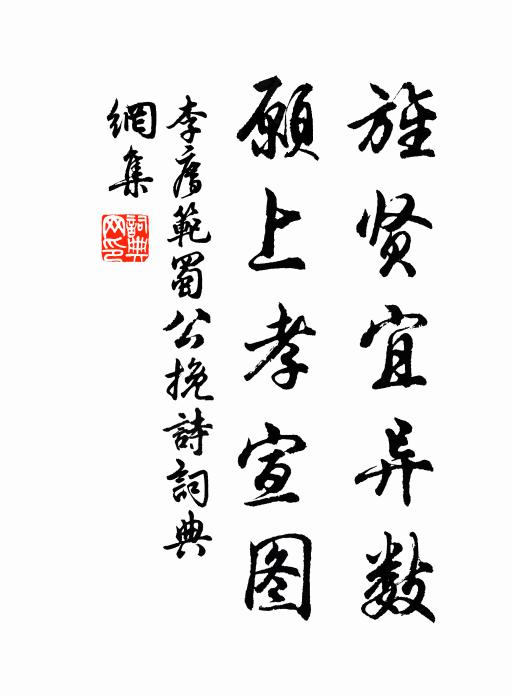 旌贤宜异数
願上孝宣图
李廌範蜀公挽詩詞典
網集
詞典
网印